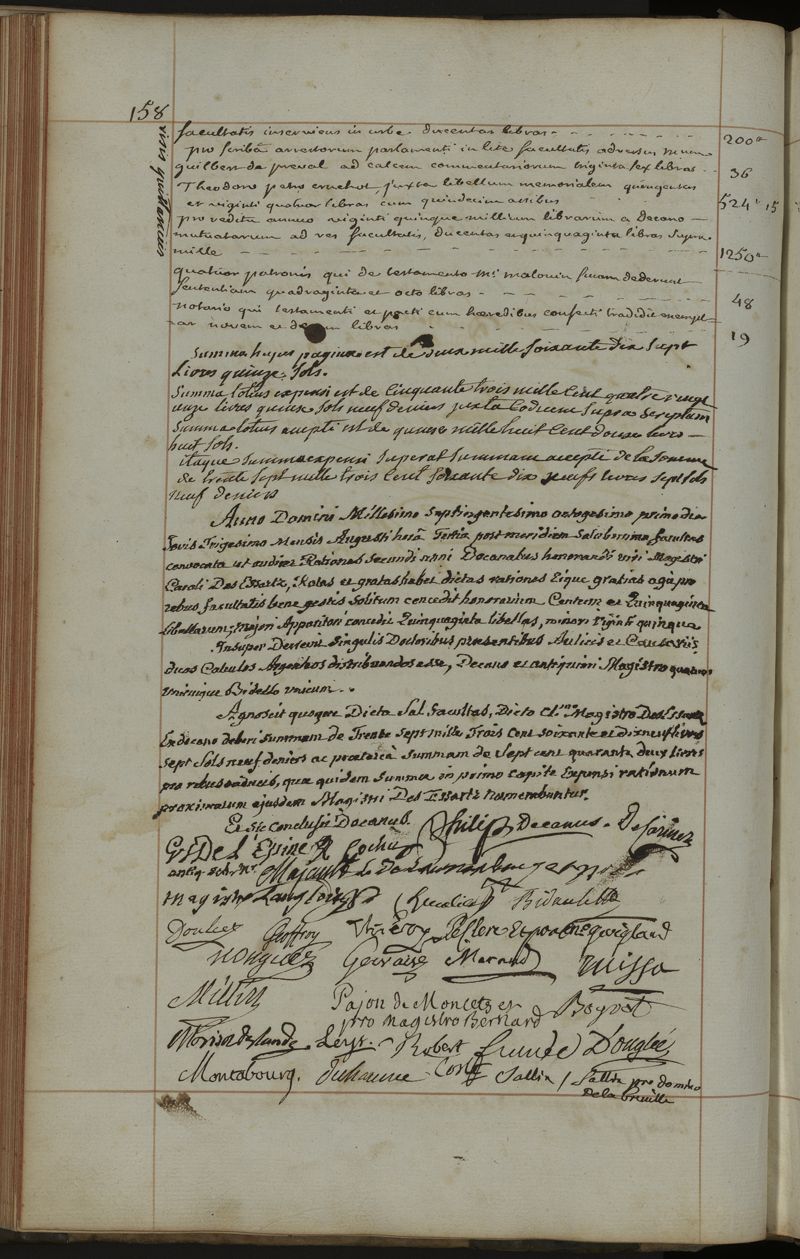 158
visis quittanciis
facultatis inserviens in urbe ducentas libras 200
pro scribâ arrestorum parlamenti in lite facultatis adversus
guilbert de preval ad calcem commentariorum triginta sex libras 36
Theodoro petro cruchot juxta libellum memorialem quingentas
et viginti quatuor libras cum quindecim assibus 524 15
pro reditu annuo viginti quinque millium librarum a decano
mutuatarum ad res facultatis, ducentas et quinquaginta libras supra
mille 1250
quatuor patronis qui de testamento Mi malouin suam dederunt
sententiam quadraginta et octo libras 48
notario qui testamenti et pacti cum hoeredibus confecti tradidit exempl-
ar novem et decem libras 19
Summa hujus paginae est de deux mille soixante dix sept
livres quinze sols.
Summa totius expensi est de cinquante trois mille cent quatre vingt
onze livres quinze sols neuf deniers juxta codicem supra scriptum
Summa totius accepti est de quinze mille huit cent douze livres
huit sols.
itaque summa expensi superat summam accepti de la somme
de trente sept mille trois cent soixante dix neuf livres sept sols
neuf deniers
Anno Domini Millesimo Septingentesimo octogesimo primo die
Jovis Trigesimo Mensis Augusti horâ Tertia post meridiem Saluberrima facultas
convocata ut audiret Rationes Secundi anni Decanatus honorandi viri Magistri
Caroli Des Essartz, Ratas et gratas habet dictas rationes Eique gratias agit pro
rebus facultatis bene gestis solitum concedit honorarium Centum et Quinquaginta
libellarum; majori Apparitori concedit Quinquaginta libellas, minori viginti quinque
Insuper Decrevit singulis Doctoribus praesentibus Aulicis et Castrensibus
duos Calculos Argenteos distribuendos esse, Decano et antiquiori Magistro quatuor
unicuique Bidello unicum.
Agnoscit quoque Dicta Sal. Facultas, Dicto Cl. Magistro Des Essartz
Ex decano deberi summam de Trente sept mille Trois Cent soixante et dixneuf livres
sept sols neuf deniers ac praetereà summam de sept cent quarante deux livres
pro rebus caducis, quae quidem summa in primo capite Expensi rationum
proximarum ejusdem Magistri Des Essartz numerabuntur.
Et sic conclusit Decanus. Philip Decanus.
De L'Epine Cochu
Majault
magistro Langlois Bidault
Doulcet Geoffroy Thiery Leclerc Et pro me guigland
nouguez Gervaise Morand missa
Millin Pajon de Moncets et
pro magistro Bernard Boyrot
Morisot Deslandes Leys. Robert Dougléé
Montabourg. Duhaume Coste Sallin / Sallin pro domino
de la breuille